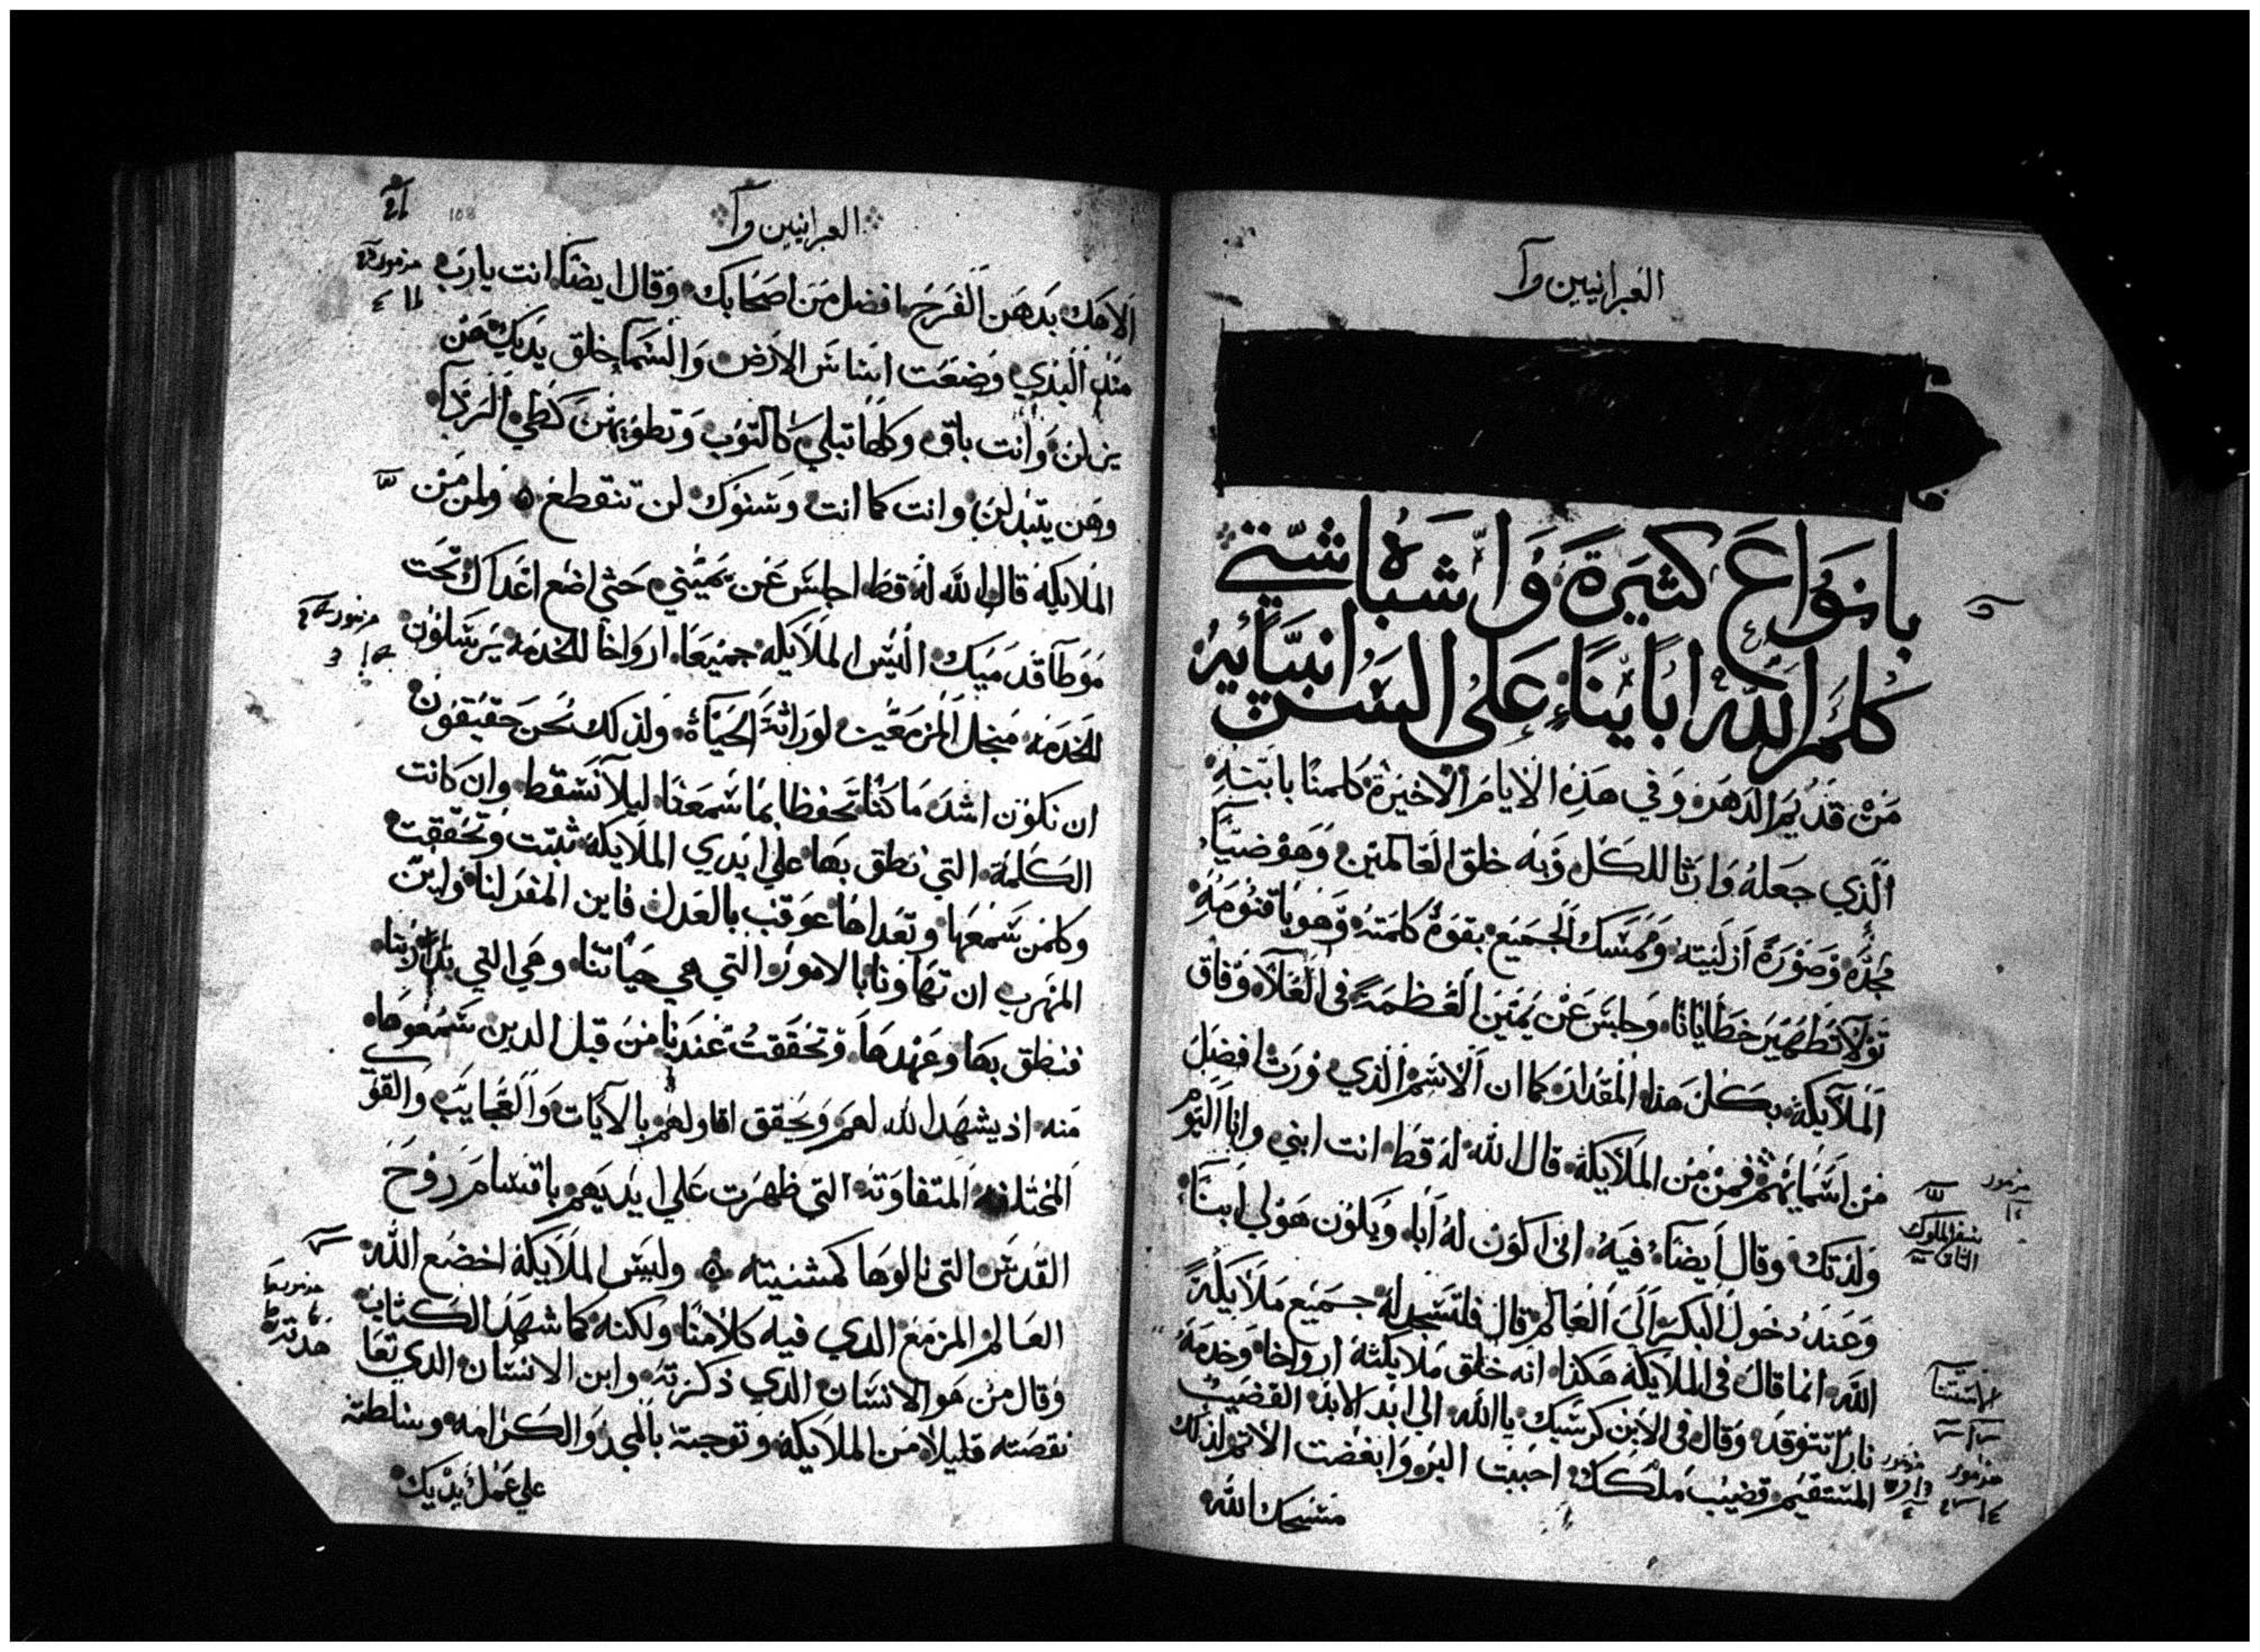 العبرانيين وآ
بانواع كثيرة واشباه شتي
كلم الله اباينا علي السن انبيايه
من قديم الدهر وفي هذه الايام الاخيرة كلمنا بابنه
الذي جعله وارثا للكل وبه خلق العالمين وهو ضيآ
مجده وصورة ازليته وممسك الجميع بقوة كلمته وهو باقنومه
تولا تطهير خطايانا وجلس عن يمين العظمة في العلا وفاق
الملايكة بكل هذا المقدار كما ان الاسم الذي ورث افضل
من اسمايهم فمن من الملايكة قال الله له قط انت ابني وانا اليوم
ولدتك وقال ايضا فيه اني اكون له ابا ويكون هو لي ابنا
وعند دخول البكر الي العالم قال فلتسجد له جميع ملايكة
الله انما قال في الملايكة هكذا انه خلق ملايكته ارواحا وخدمه
نارا تتوقد وقال في الابن كرسيك ياالله الي ابد الابد القضيب
المستقيم قضيب ملكك احببت البر وابغضت الاثم ولذلك
مسحك الله
مزمور
سفر الملوك
الثاني
مزمور
مزمور
العبرانيين وآ
108
الاهك بدهن الفرح افضل من اصحابك وقال ايضا انت يارب
منذ البدي وضعت اساس الارض والسما خلق يديك هن
يزلن وانت باق وكلها تبلي كالثوب وتطويهن كطي الردآ
وهن يتبدلن وانت كما انت وسنوك لن تنقطع ولمن من
الملايكة قال الله له قط اجلس عن يميني حتي اضع اعداك تحت
موطا قدميك اليس الملايكة جميعا ارواحا للخدمة يرسلون
للخدمة منجل المزمعين لوراثة الحياة ولذلك نحن حقيقون
ان نكون اشد ما كنا تحفظا بما سمعنا ليلا نسقط وان كانت
الكلمة التي نطق بها علي ايدي الملايكة ثبتت وتحققت
وكلمن سمعها وتعداها عوقب بالعدل فاين المفر لنا واين
المهرب ان تهاونا بالامور التي هي حياتنا وهي التي بدا ربنا
فنطق بها وعهدها وتحققت عندنا من قبل الدين سمعوها
منه اذ يشهد الله لهم ويحقق اقاولهم بالايات والعجايب والقوي
المختلفة المتفاوته التي ظهرت علي ايديهم باقسام روح
القدس التي نالوها كمشيته وليس الملايكة اخضع الله
العالم المزمع الدي فيه كلامنا ولكنه كما شهد الكتاب
وقال من هو الانسان الدي ذكرته وابن الانسان الدي تعا
نقصته قليلا من الملايكة وتوجته بالمجد والكرامه وسلطته
علي عمل يديك
مزمور
مزمور